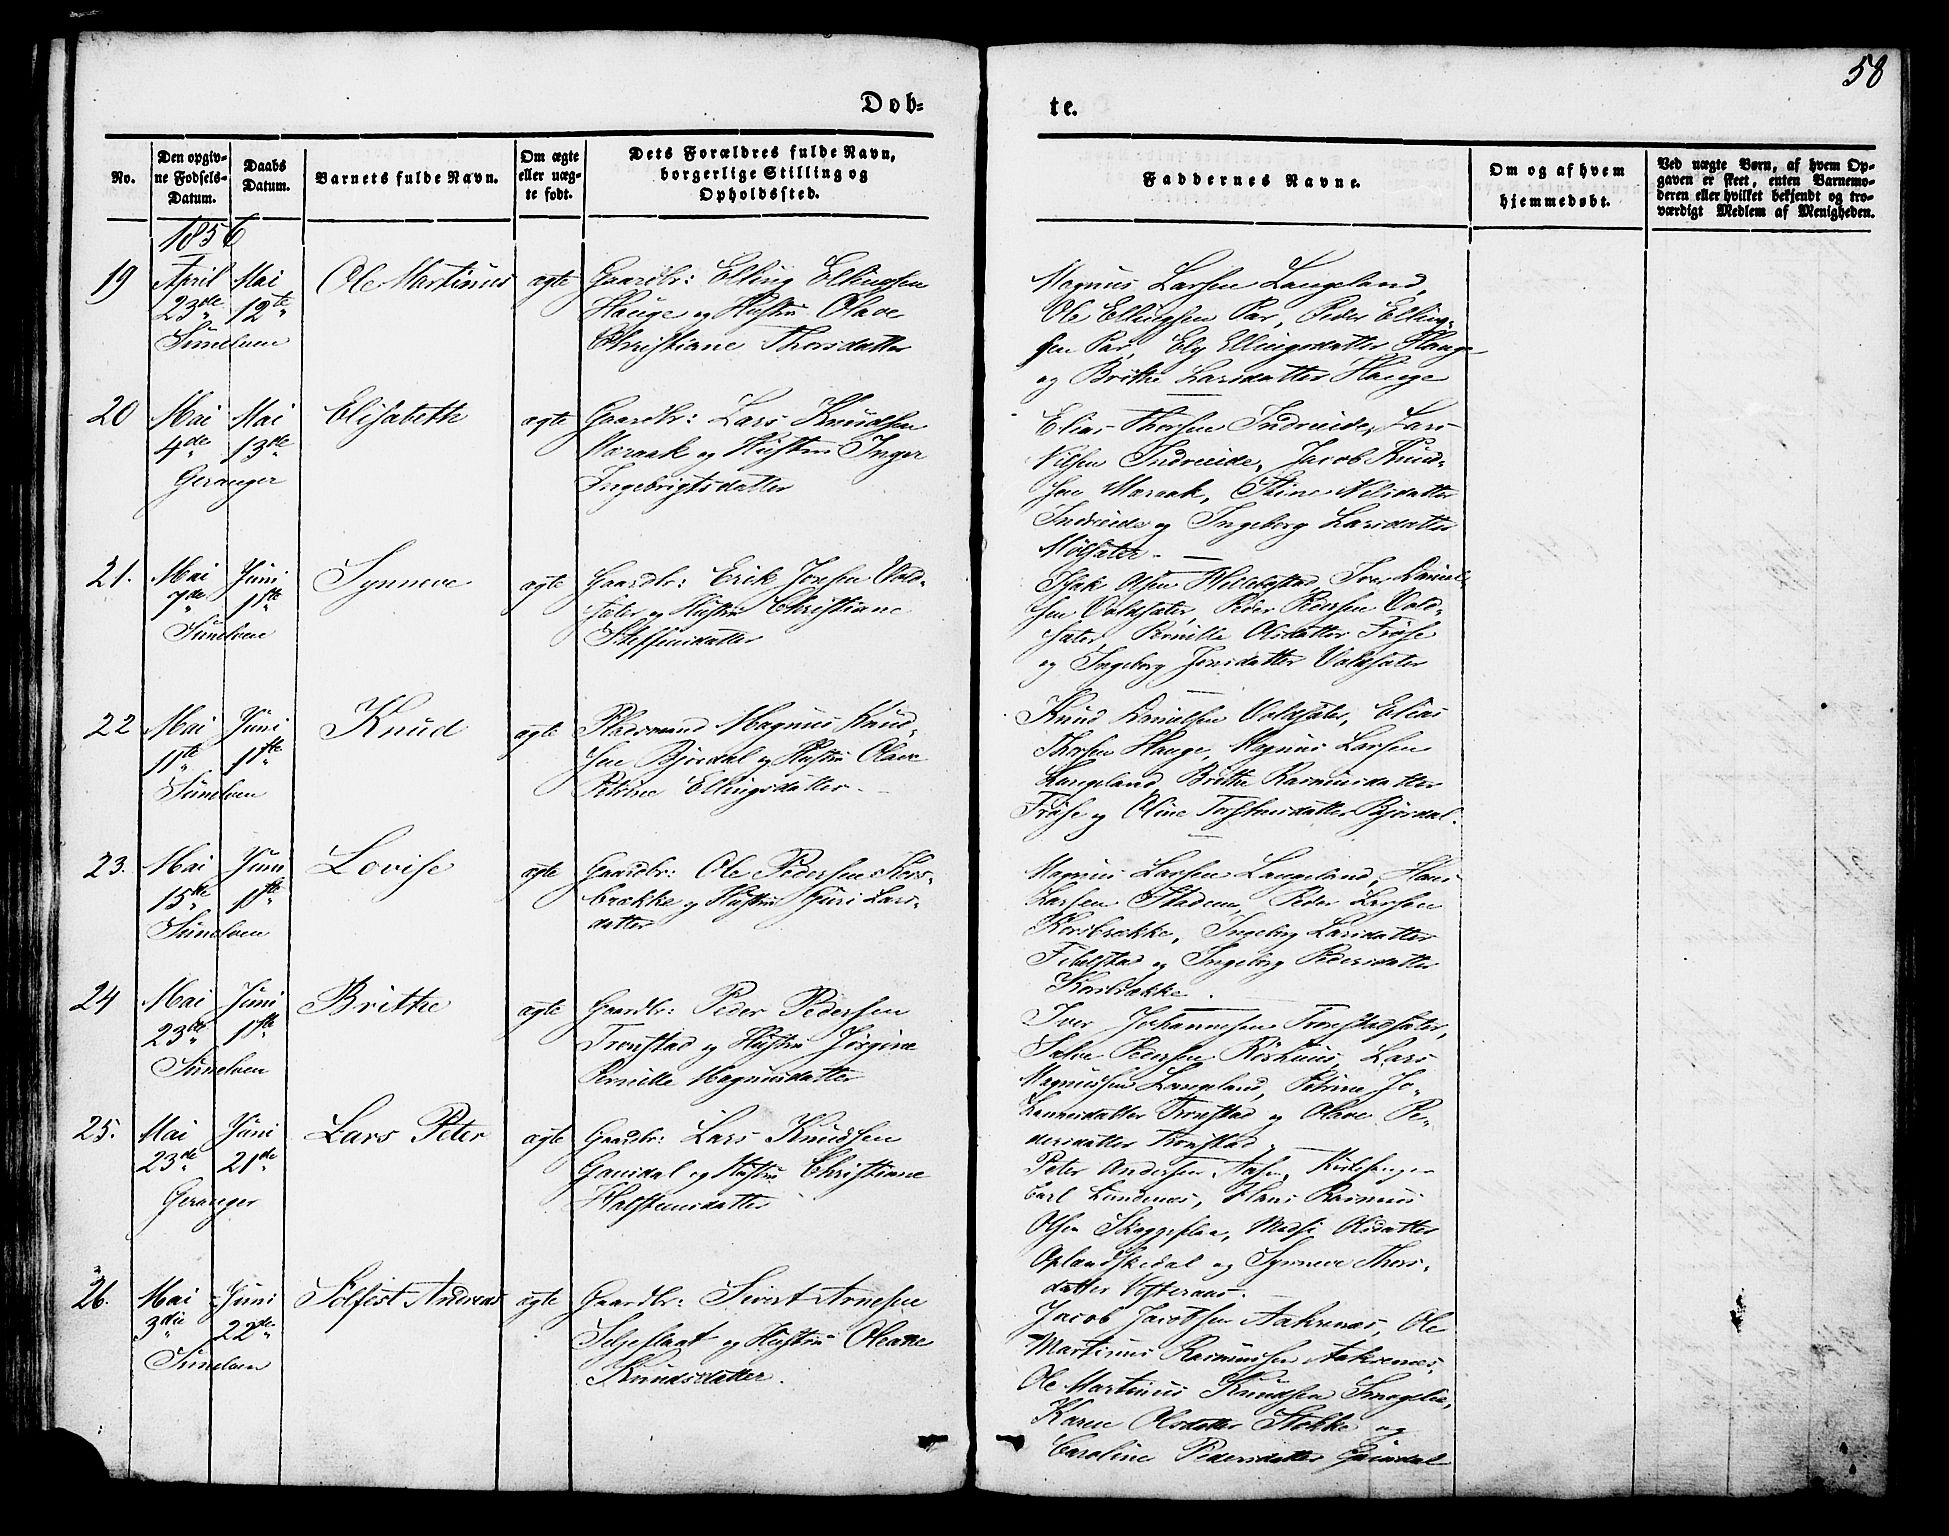 58
Døb-
te.
No.
Den opgiv-
ne Fødsels-
Datum.
Daabs
Datum.
Barnets fulde Navn.
Om ægte
eller uæg-
te født.
Dets Forældres fulde Navn,
borgerlige Stilling og
Opholdssted.
Faddernes Navne.
Om og af hvem
hjemmedøbt.
Ved uægte Børn, af hvem Op-
gaven er skeet, enten Barnemo-
deren eller hvilket bekjendt og tro-
værdigt Medlem af Menigheden.
1856
19
April
23de
Sunelven
Mai
12te
Ole Martinus
ægte
Gaardbr: Elling Ellingsen
Hauge og Hustru Olave
Christiane Thorsdatter
Magnus Larsen Langeland,
Ole Ellingsen Par, Peder Elling-
sen Par, Ely Ellingsdatter Hauge
og Brithe Larsdatter Hauge
20
Mai
4de
Geranger
Mai
13de
Elisabeth
ægte
Gaardbr: Lars Knudsen
Maraak og Hustru Inger
Ingebrigtsdatter
Elias Thorsen Indreeide, Lars
Nilsen Indreeide, Jacob Knud-
sen Maraak, Stine Nilsdatter
Indreeide og Ingeborg Larsdatter
Mølsæter
21.
Mai
7de
Sunelven
Juni
1ste
Synneve
ægte
Gaardbr: Erik Jonsen Vold-
sæter og Hustru Christiane
Steffensdatter
Isak Olsen Hellebostad, Iver Daniel-
sen Voldsæter, Peder Pedersen Vold-
sæter, Pernille Olsdatter Frøse
og Ingeborg Jonsdatter Voldsæter
22
Mai
11te
Sunelven
Juni
1ste
Knud
ægte
Pladsmand Magnus Knud-
sen Bjørdal og Hustru Olave
Petrine Ellingsdatter
Knud Knudsen Voldsæter, Elias
Thorsen Hauge, Magnus Larsen
Langeland, Brithe Rasmusdatter
Frøse og Oline Torstensdatter Bjørdal.
23.
Mai
15de
Sunelven
Juni
1ste
Lovise
ægte
Gaardbr: Ole Pedersen Kors-
brække og Hustru Guri Lars-
datter
Magnus Larsen Langeland, Hans
Larsen Stadem, Peder Larsen
Korsbrække, Ingeborg Larsdatter
Fibelstad og Ingeborg Pedersdatter
Korsbrække.
24
Mai
23de
Sunelven
Juni
1ste
Brithe
ægte
Gaardbr: Peder Pedersen
Tronstad og Hustru Jørgine
Pernille Magnusdatter
Iver Johannesen Tronstadsæter,
Salve Pedersen Røshuus, Lars
Magnussen Langeland, Petrine Jo-
hannesdatter Tronstad og Olave Pe-
dersdatter Tronstad
25.
Mai
23de
Geranger
Juni
21de
Lars Peter
ægte
Gaardbr: Lars Knudsen
Gausdal og Hustru Christiane
Halstensdatter
Peter Andersen Aasen, Kirkesanger
Carl Lundenes, Hans Rasmus
Olsen Skaggeflaa, Madsi Olsdatter
Oplandskedal og Synneve Thors-
datter Vesteraas.
26.
Mai
3die
Sunelven
Juni
22de
Solfest Andreas
ægte
Gaardbr: Sivert Arnesen
Seljeflaat og Hustru Oleane
Knudsdatter.
Jacob Jacobsen Aakrenæs, Ole
Martinus Rasmussen Aakrenæs,
Ole Martinus Knudsen Smogelie,
Karen Olsdatter Stokke og
Caroline Pedersdatter Gausdal